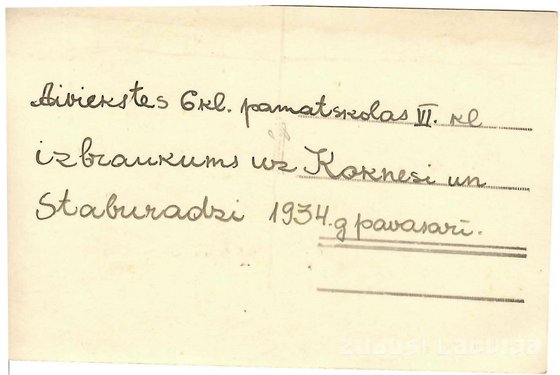 Aiviekstes 6kl. pamatskolas VI. kl
izbraukums uz Koknesi un
Staburadzi 1934.g pavasarī.
zudusi Latvija